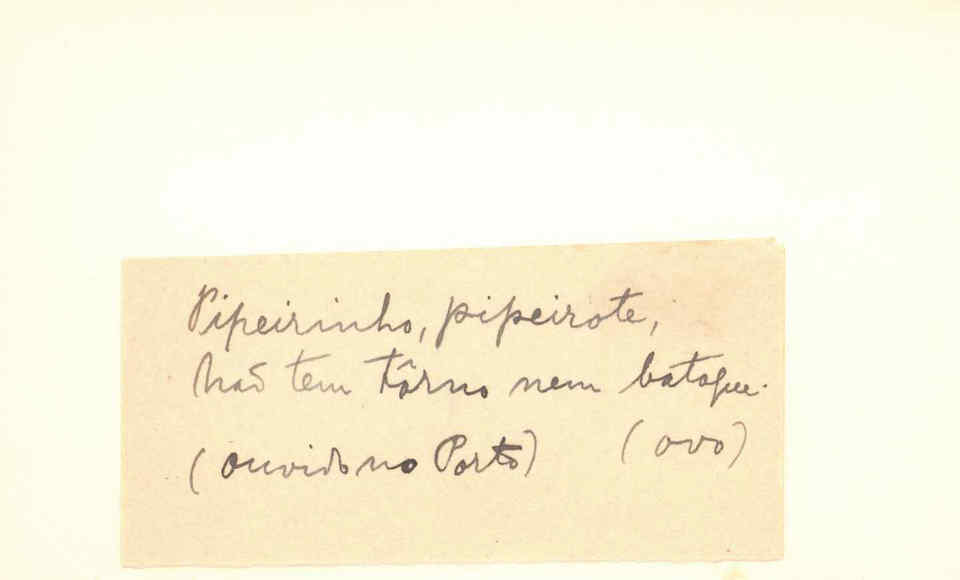 Pipeirinho, pipeirote,
Não tem tôrno nem batoque.
(ouvido no Porto) (ovo)